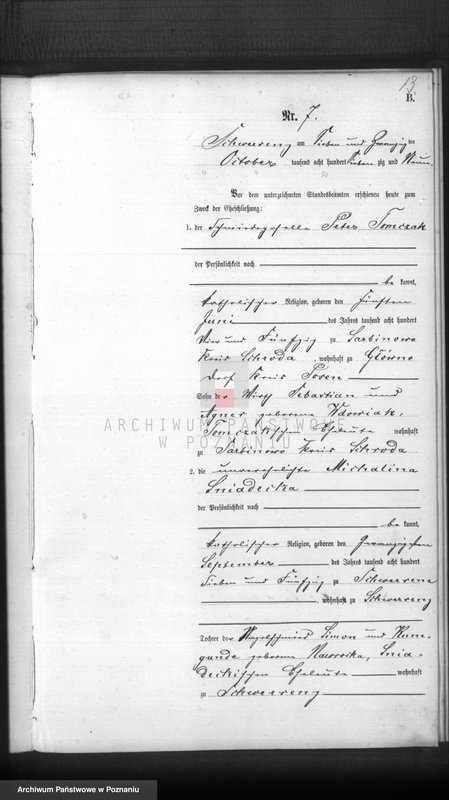 13
B.
Nr. 7.
Schwersenz am Sieben und Zwanzig ten
October tausend acht hundert Sieben zig und Neun.
Vor dem unterzeichneten Standesbeamten erschienen heute zum
Zweck der Eheschließung:
1. der Schmiedegeselle Peter Tomczak
der Persönlichkeit nach
be kannt,
katholischer Religion, geboren den Fünften
Juni des Jahres tausend acht hundert
Vier und Fünfzig zu Sarbinowo
Kreis Schroda, wohnhaft zu Główno
Dorf Kreis Posen
Sohn der Wirth Sebastian und
Agnes geborene Wdowiak,
Tomczakschen Eheleute wohnhaft
zu Sarbinowo Kreis Schroda
2. die unverehelichte Michalina
Sniadecka
der Persönlichkeit nach
be kannt,
katholischer Religion, geboren den Zwanzigsten
September des Jahres tausend acht hundert
Sieben und Fünfzig zu Schwersenz
, wohnhaft zu Schwersenz
Tochter der Nagelschmied Simon und Kune-
gunde geborene Nawrocka, Snia-
deckischen Eheleute wohnhaft
zu Schwersenz
ARCHIWUM PAŃSTWOWE
W POZNANIU
Archiwum Państwowe w Poznaniu
Archiwum Państwowe w Poznaniu